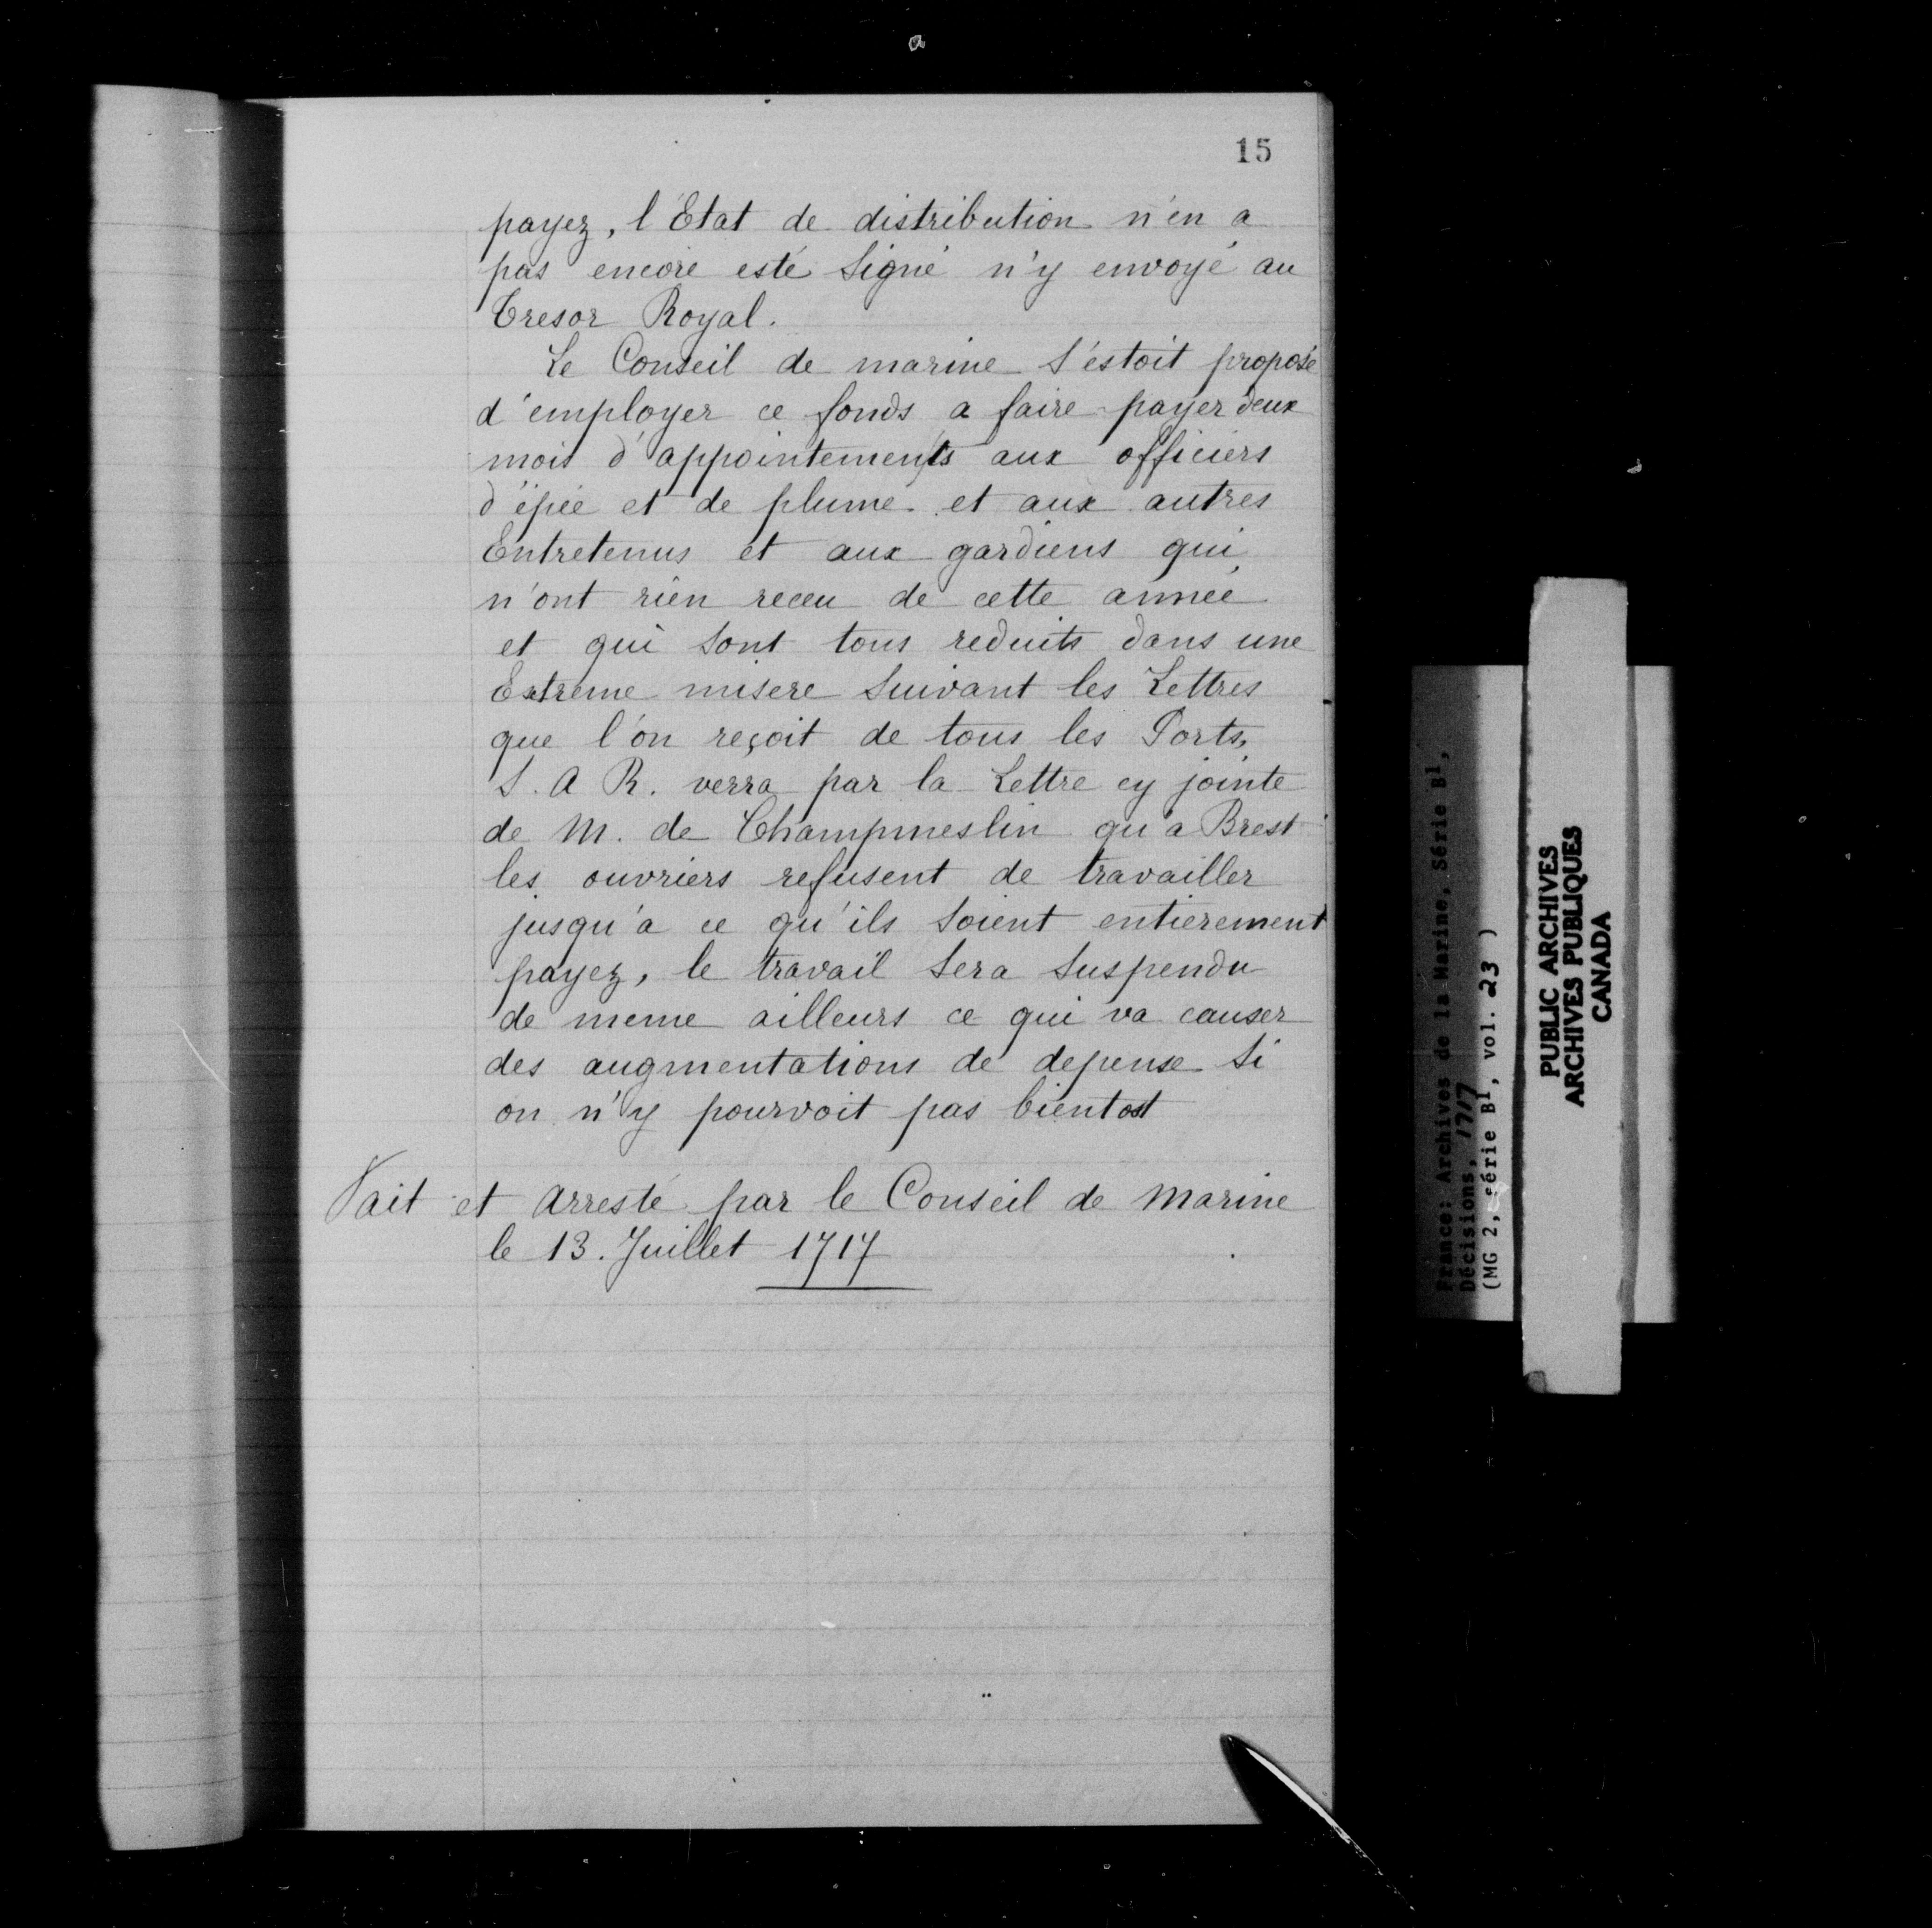 15
payez, l'Etat de distribution n'en a
pas encore esté signé n'y envoyé au
Tresor Royal.
Le Conseil de marine s'estoit proposé
d'employer ce fonds a faire payer deux
mois d'appointements aux officiers
d'épée et de plume et aux autres
Entretenus et aux gardiens qui
n'ont rien receu de cette année
et qui sont tous reduits dans une
Extreme misere suivant les Lettres
que l'on reçoit de tous les Ports,
S. A R. verra par la Lettre cy jointe
de M. de Champmeslin qu'a Brest
les ouvriers refusent de travailler
jusqu'a ce qu'ils soient entierement
payez, le travail sera suspendu
de meme ailleurs ce qui va causer
des augmentations de depense si
on n'y pourvoit pas bientost
Fait et arresté par le Conseil de Marine
le 13. Juillet 1717
France: Archives de la Marine, Série B1,
Décisions, 1717
(MG 2, série B1, vol. 23 )
PUBLIC ARCHIVES
ARCHIVES PUBLIQUES
CANADA